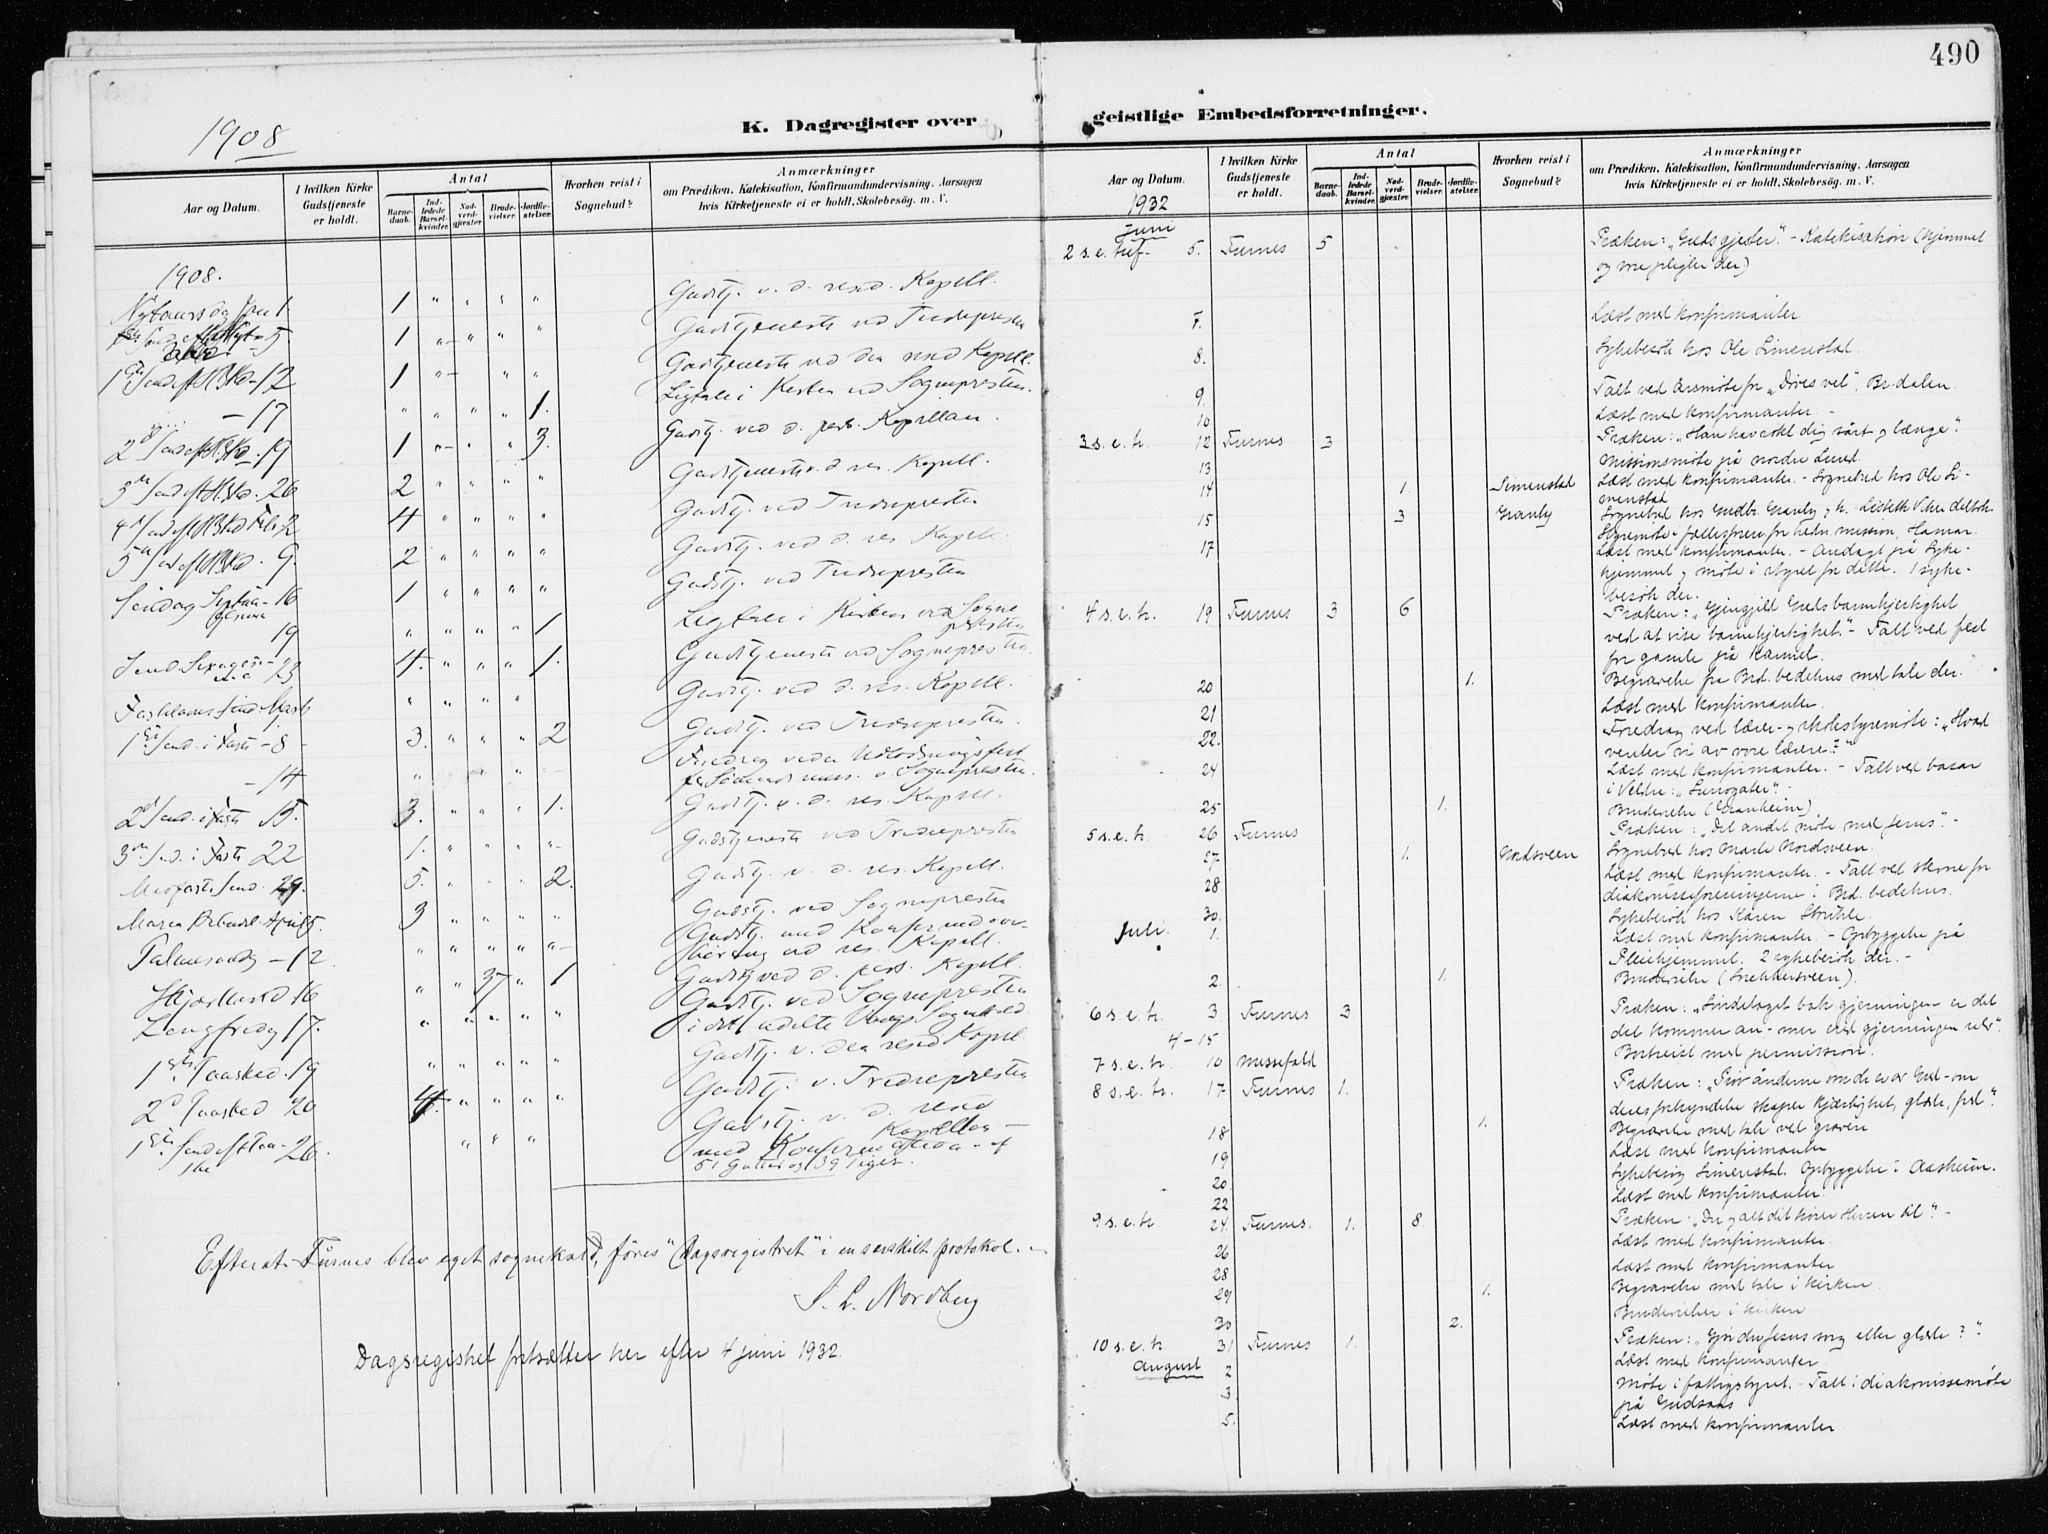 490
1908
K. Dagregister over
geistlige Embedsforretninger.
Aar og Datum.
I hvilken Kirke Gudstjeneste er holdt.
Antal
Barnedaab.
Indledede Barselkvinder.
Nadverdgjæster
Brudevielser.
Jordfæstelser.
Hvorhen reist i Sognebud?
Anmærkninger
om Prædiken, Katekisation, Konfirmandundervisning, Aarsagen
hvis Kirketjeneste ei er holdt, Skolebesøg. m. V.
1908.
Nytaarsdag Jan 1 1 " " " " Gudstj. v. d. resd. Kapell.
5 1 " " " " Gudstjeneste ved Tredrepresten
12 1 " " " Gudstjeneste ved den resd Kapell.
- 17 " " " " 1. Ligtale i Kirken ved Sognepresten.
19 1 " " " 3. Gudstj. ved d. pers. Kapellan.
26 2 " " " " Gudstjeneste v. d. res. Kapell.
2 4 " " " " Gudstj. ved Tredrepresten
9. 2 " " " " Gudstj. ved d. res. Kapell.
Søndag 16 1 " " " " Gudstj. ved Tredrepresten
19 " " " " 1 Ligtale i Kirken ved Sognepresten
Sønd. 23 4. " " " 1. Gudstjeneste ved Sognepresten.
Fastelavns Sønd. Marts 1 " " " " Gudstj. ved d. res. Kapell.
1ste Sønd. i Faste - 8 - 3. " " " 2 Gudstj. ved Tredrepresten.
- 14 Foredrag
2d Sønd. i Faste 15. 3. " " " 1. Gudstj. v. d. res. Kapell.
3die Sønd. i Faste 22 1. " " " " Gudstjeneste ved Tredrepresten
Midfaste Sønd. 29. 5. " " " 2. Gudstj. v. d. res. Kapell.
Maria Bebudel. April 5. 3 " " " " Gudstj. ved Sognepresten
Palmesøndag - 12 " " " " Gudstj. med
ved res. Kapell.
Skjærtorsd 16 " " 37 " 1 Gudstj ved d. pers. Kapell
Langfredag 17. " " " " " Gudstj. ved Sognepresten
i det
1ste Paasked. 19 " " " " " Gudstj. v. den resd Kapel.
2d Paasked 20 4. " " " " Gudstj. v. Tredrepresten
26 " " " Gudstj. v. d. resd
Kapellan
med Konfirmation af
51 Gutter og 39 Piger.
Efterat Furnes blev eget sognekald, føres "Dagsregistret" i en særskilt protokol.
S. L. Nordberg
Dagsregistret fortsætter her efter 4 juni 1932.
Aar og Datum.
I hvilken Kirke Gudstjeneste er holdt.
Antal
Barnedaab.
Indledede Barselkvinder.
Nadverdgjæster
Brudevielser.
Jordfæstelser.
Hvorhen reist i Sognebud?
Anmærkninger
om Prædiken, Katekisation, Konfirmandundervisning, Aarsagen
hvis Kirketjeneste ei er holdt, Skolebesøg. m. V.
1932
Juni
2 s.e. tref. 5. Furnes 5 Præken: "Guds gjester". - Katekisation (hjemmet
og vore pligter der)
7. Læst med konfirmanter.
8. Sykebesøk hos Ole Simenstad.
9. Talt ved årsmøte for "Døves vel", Br.dalen.
10 Læst med konfirmanter -
3 s.e.tr. 12 Furnes 3 Præken: "Han har søkt dig sårt og længe".
13 Missionsmøte på nordre Lund.
14 1. Simenstad Læst med konfirmanter. - Sognebud hos Ole Simenstad
15 3 Granby Sognebud hos Gudbr. Granby
Hamar.
17 Læst med konfirmanter. - Andagt på Sykehjemmet
og møte i styret for dette. 1 sykebesøk
der.
4 s.e.tr. 19 Furnes 3 6 Præken: "Gjengjeld Guds barmhjertighet
ved at vise barmhjertighet". - Talt ved fest
for gamle på Karmel.
20 1. Begravelse fra Brd. bedehus med tale der.
21 Læst med konfirmanter.
22. Foredrag ved lærer- og skolestyremøte: "Hvad
venter vi av vore lærere?"
24 Læst med konfirmanter. - Talt ved basar
i Veldre: "Surrogater". -
25 1. Brudevielse (Granheim)
5 s.e.tr. 26 Furnes Præken: "Det andet møte med Jesus". -
27 1. Nordsveen Sognebud hos Marte Nordsveen.
28 Læst med konfirmanter. - Talt ved stevne for
diakonisseforeningerne i Brd. bedehus.
30. Sykebesøk hos Karen
Juli. 1. Læst med konfirmanter. - Opbyggelse på
Pleiehjemmet. 2 sykebesøk der. -
2. 1. Brudevielse
6 s.e.tr. 3. Furnes 3. Præken: "Sindelaget bak gjerningen er det
det kommer an - mer end gjerningen selv".
4-15 Bortreist med permission.
7 s.e.tr. 10 Messefald
8 s.e.tr. 17 Furnes 1. Præken: "Prøv ånderne om de er av Gud - om
deres forkyndelse skaper kjærlighet, glæde, fred".
18 1. Begravelse med tale ved graven
19 Læst med konfirmanter
20. Sykebesøg Simenstad. Opbyggelse i Aasheim.
22 Læst med konfirmanter.
9 s.e.tr 24. Furnes. 1. 8. Præken: "Du og alt dit hører Herren til". -
26 Læst med konfirmanter.
28 Læst med konfirmanter
29 1. Begravelse med tale i kirken.
30 2. Brudevielser i kirken
10 s.e.tr 31 Furnes 1. Præken: "Gjør du Jesus sorg eller glæde?".
August 2 Læst med konfirmanter.
3 Møte i fattigstyret. - Talt i diakonissemøte
på Gudsaas
5. Læst med konfirmanter